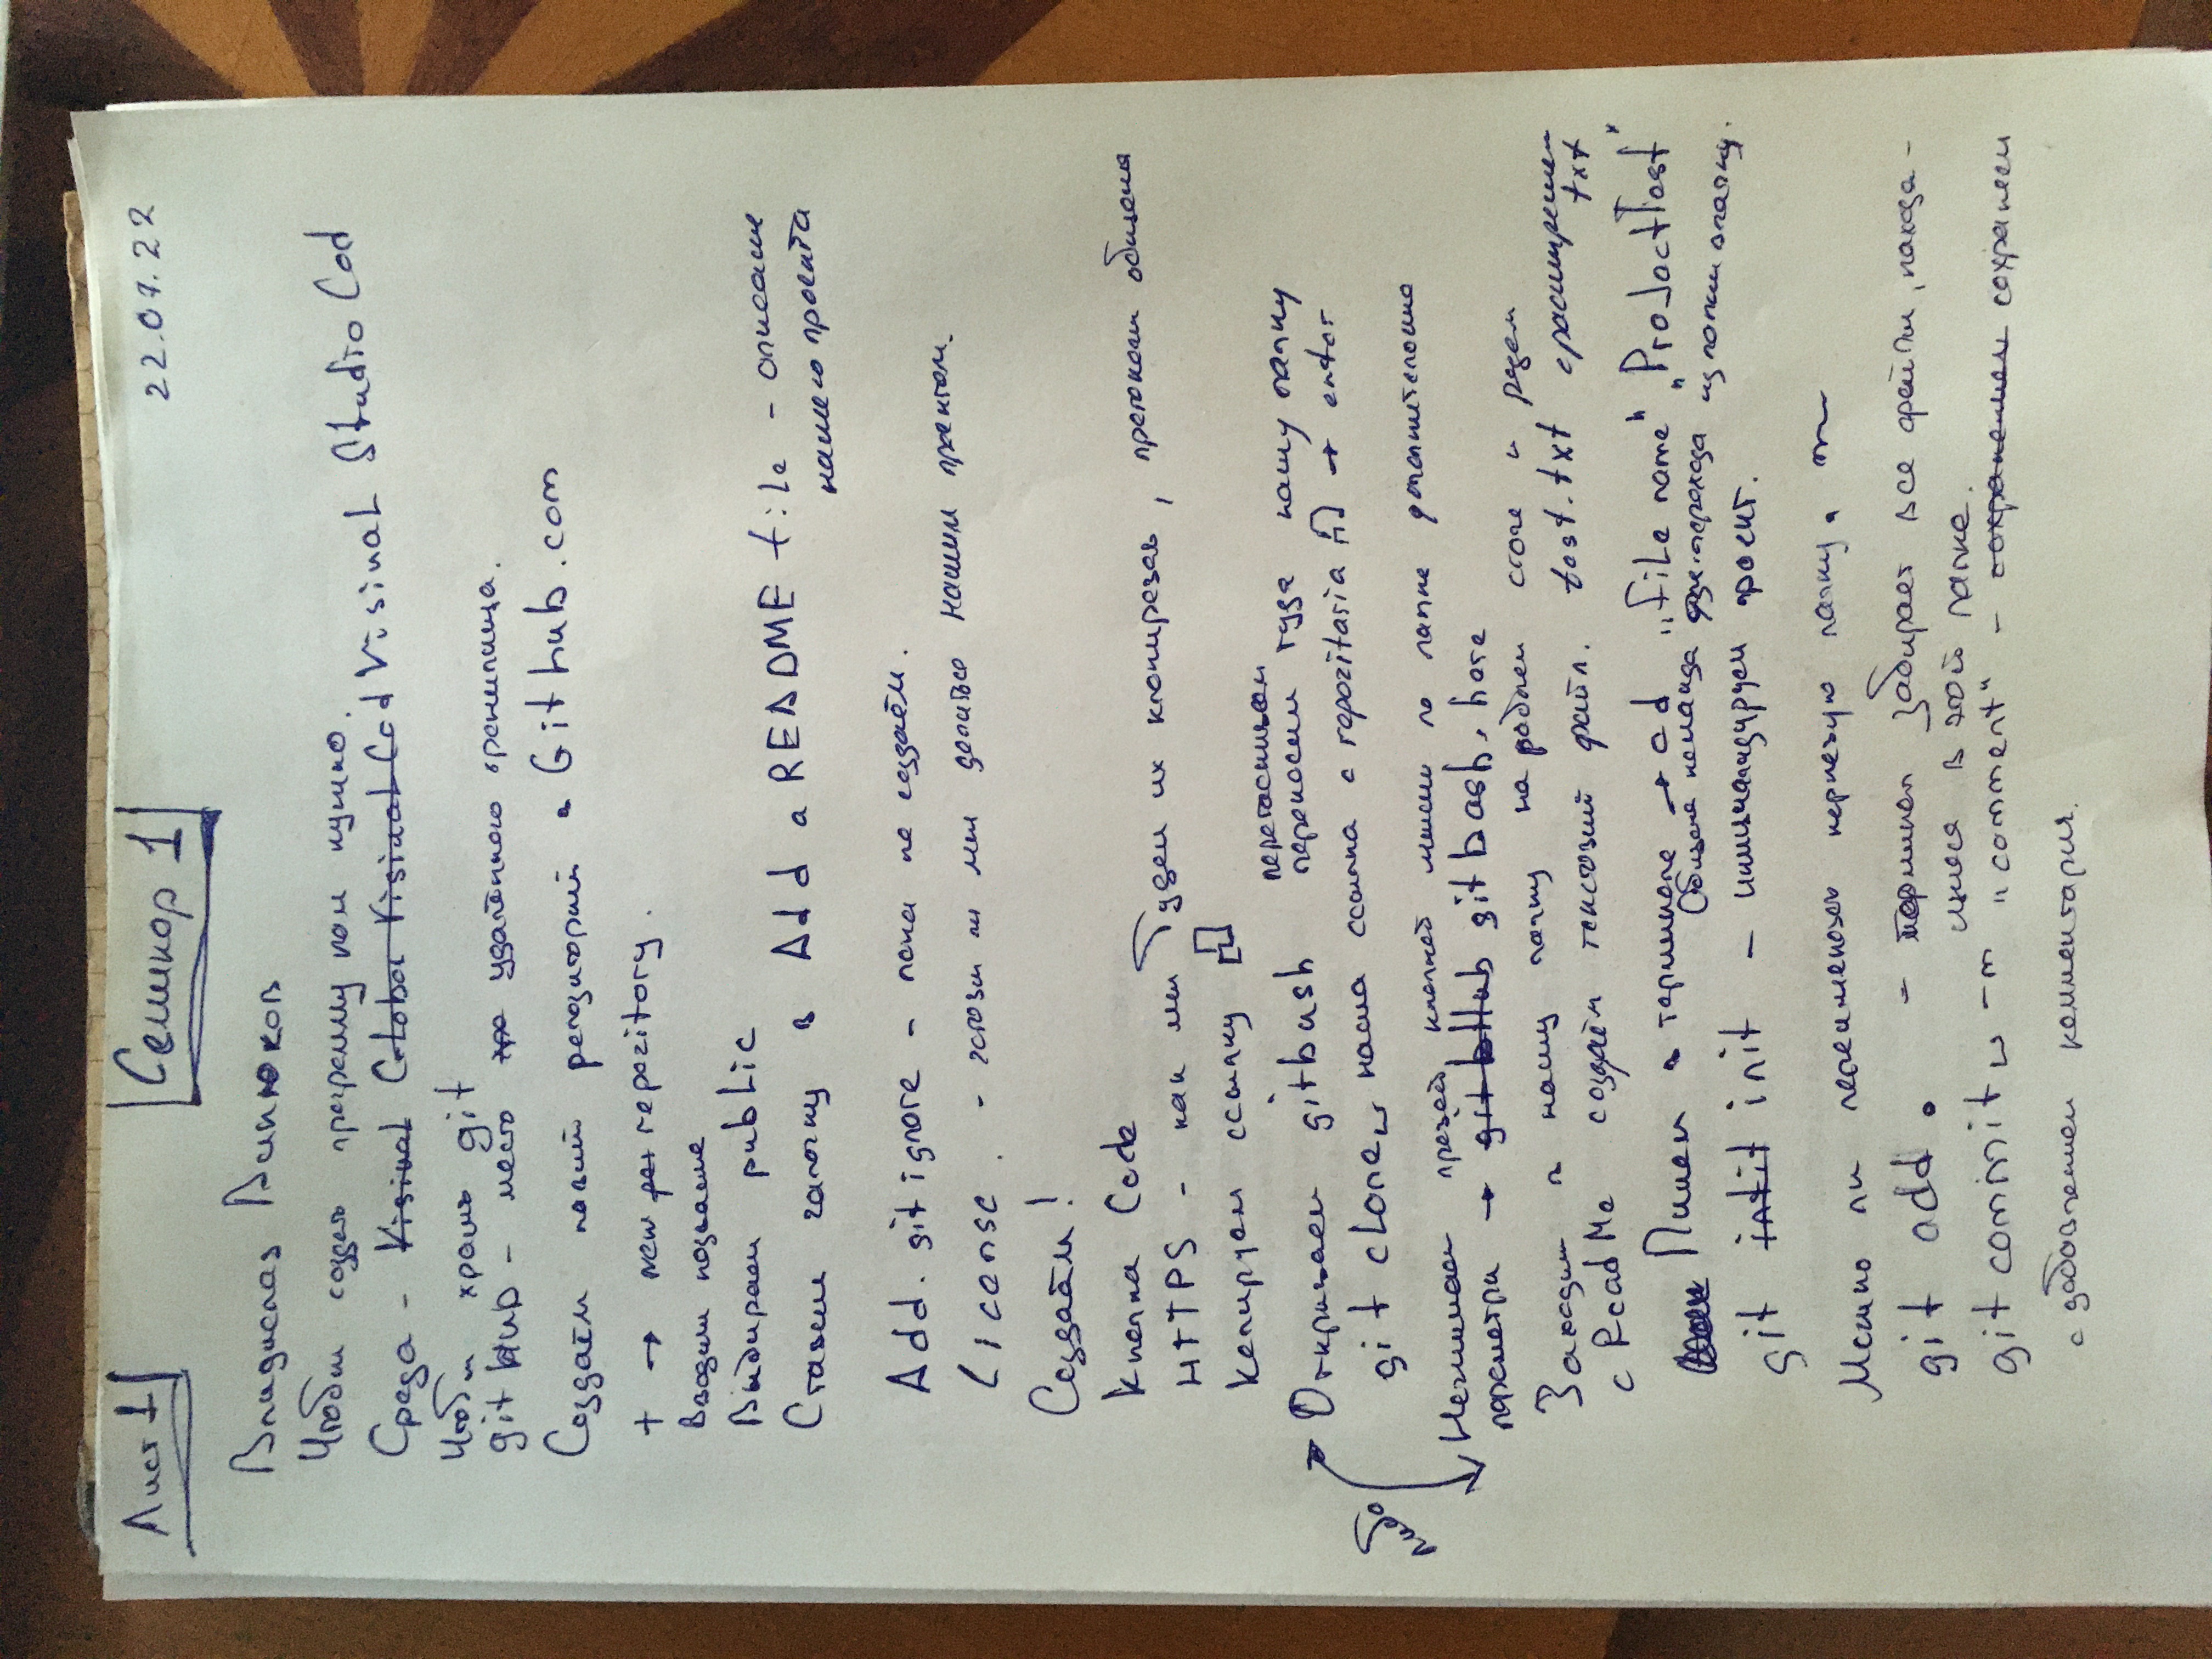 Лист 1
Семинар 1
22.07.22
Владислав
Чтобы создать программу нам нужно.
Среда - Visinal Globor Visinal Cod Visinal Studio Cod
Чтобы хранить git
gitHub - место хра удалённого хранилища.
Создаём новый репозиторий в GitHub.com
+ → new реп repozitory.
Вводим название
Выбираем public
Ставим галочку в Add a README file - описание
нашего проекта
Add. gitignore - пока не создаём.
License. - готовы ли мы делиться нашим проектом.
Создаём!
Кнопка Code
HTTPS - как мы будем их клонировать, протокол обмена
Копируем ссылку
перетаскиваем
Открываем gitbash переносим туда нашу папку
git clone␣ наша ссылка с repozitaria → enter
либо
Нажимаем правой кнопкой мыши по папке дополнительные
параметры → git bHub git bash here
Заходим в нашу папку на рабочем столе и рядом
с ReadMe создаём текстовый файл. test.txt с расширением
txt
Пишем в терминале → cd „File name" „ProJectTest"
Общая команда для перехода из папки в папку.
git intit init - инициализируем проект.
Можно ли переименовать корневую папку,
git add . - терминал забирает все файлы, находя-
щиеся в этой папке.
git commit ␣ -m „comment" - сохранением сохраняем
с добавлением комментария.